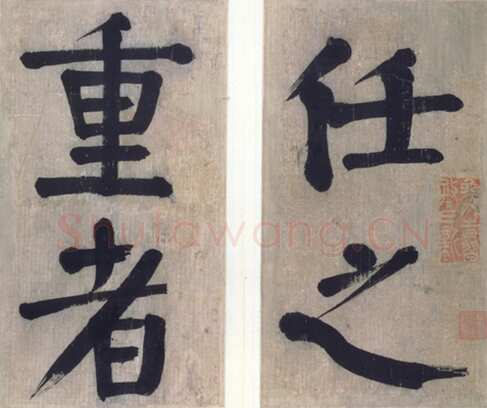 任之
重者
Shufawang.CN